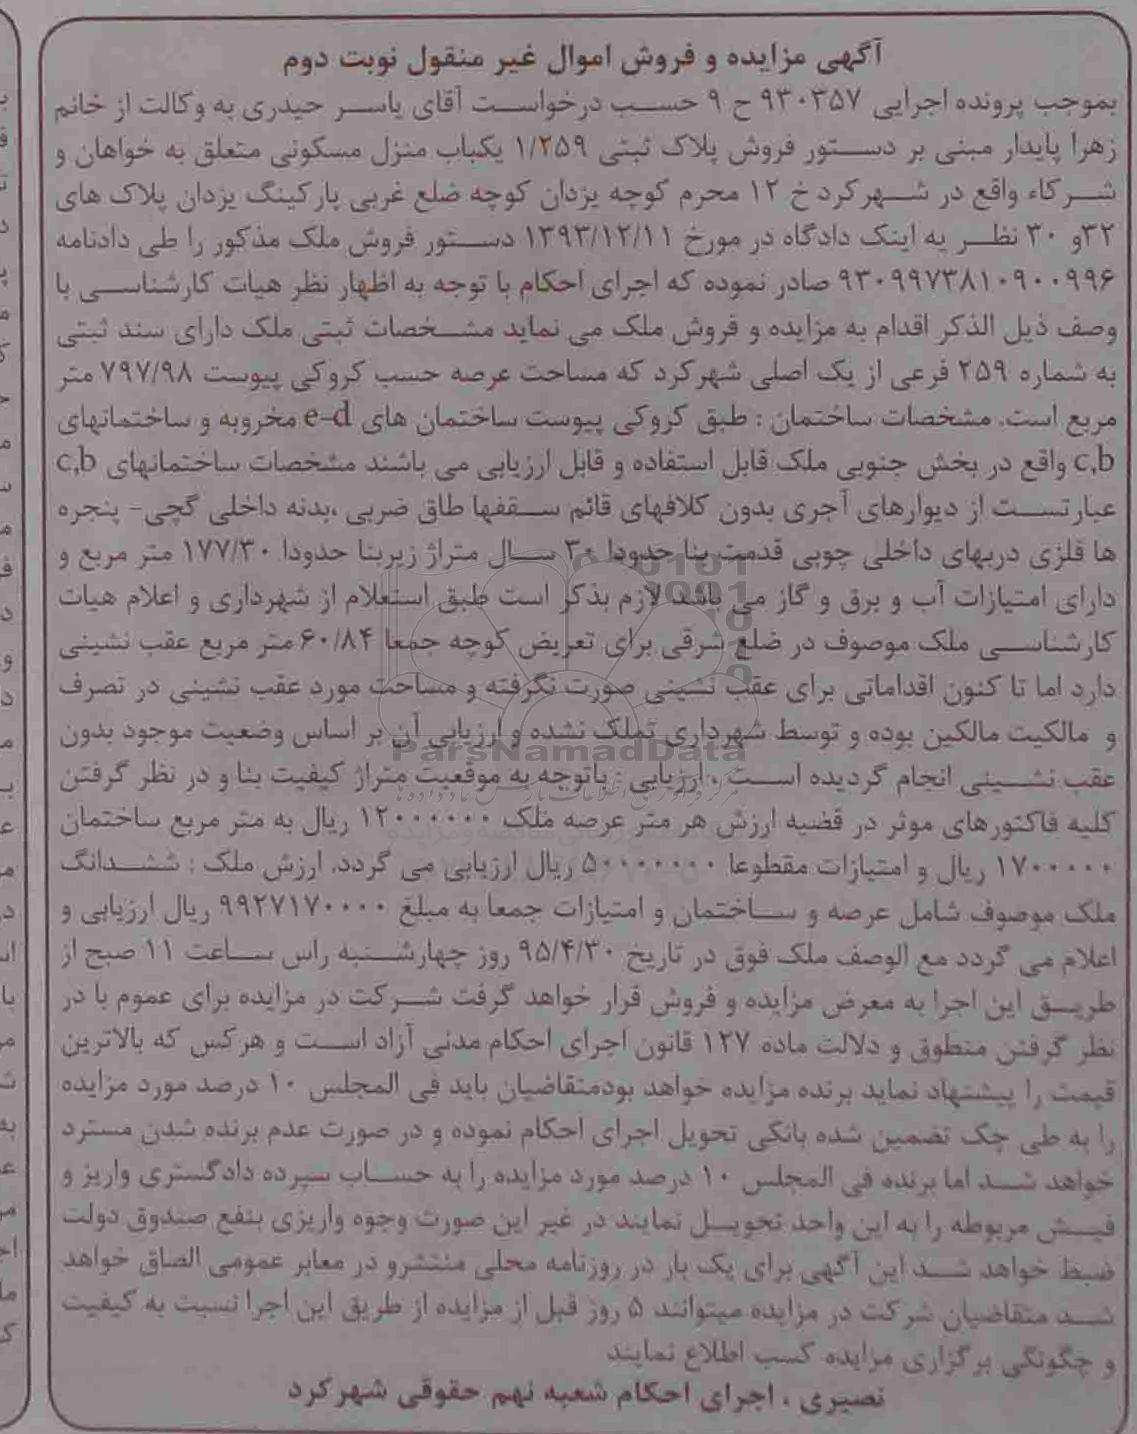 آگهی مزایده و فروش اموال غیر منقول نوبت دوم
بموجب پرونده اجرایی ۹۳۰۳۵۷ ح ۹ حسب درخواست آقای یاسر حیدری به وکالت از خانم
زهرا پایدار مبنی بر دستور فروش پلاک ثبتی ۱/۲۵۹ یکباب منزل مسکونی متعلق به خواهان و
شرکاء واقع در شهرکرد خ ۱۲ محرم کوچه یزدان کوچه ضلع غربی پارکینگ یزدان پلاک های
۳۲و ۳۰ نظر به اینک دادگاه در مورخ ۱۳۹۳/۱۲/۱۱ دستور فروش ملک مذکور را طی دادنامه
۹۳۰۹۹۷۳۸۱۰۹۰۰۹۹۶ صادر نموده که اجرای احکام با توجه به اظهار نظر هیات کارشناسی با
وصف ذیل الذکر اقدام به مزایده و فروش ملک می نماید مشخصات ثبتی ملک دارای سند ثبتی
به شماره ۲۵۹ فرعی از یک اصلی شهرکرد که مساحت عرصه حسب کروکی پیوست ۷۹۷/۹۸ متر
مربع است. مشخصات ساختمان : طبق کروکی پیوست ساختمان های e-d مخروبه و ساختمانهای
c,b واقع در بخش جنوبی ملک قابل استفاده و قابل ارزیابی می باشند مشخصات ساختمانهای c,b
عبارتست از دیوارهای آجری بدون کلافهای قائم سقفها طاق ضربی ،بدنه داخلی گچی- پنجره
ها فلزی دربهای داخلی چوبی قدمت بنا حدودا ۳۰ سال متراژ زیربنا حدودا ۱۷۷/۳۰ متر مربع و
دارای امتیازات آب و برق و گاز می باشد لازم بذکر است طبق استعلام از شهرداری و اعلام هیات
کارشناسی ملک موصوف در ضلع شرقی برای تعریض کوچه جمعا ۶۰/۸۴ متر مربع عقب نشینی
دارد اما تا کنون اقداماتی برای عقب نشینی صورت نگرفته و مساحت مورد عقب نشینی در تصرف
و مالکیت مالکین بوده و توسط شهرداری تملک نشده و ارزیابی آن بر اساس وضعیت موجود بدون
ParsNamadData
عقب نشینی انجام گردیده است . ارزیابی : باتوجه به موقعیت متراژ کیفیت بنا و در نظر گرفتن
کلیه فاکتورهای موثر در قضیه ارزش هر متر عرصه ملک ۱۲۰۰۰۰۰۰ ریال به متر مربع ساختمان
۱۷۰۰۰۰۰ ریال و امتیازات مقطوعا ۵۰۰۰۰۰۰۰ ریال ارزیابی می گردد. ارزش ملک : ششدانگ
ملک موصوف شامل عرصه و ساختمان و امتیازات جمعا به مبلغ ۹۹۲۷۱۷۰۰۰۰ ریال ارزیابی و
اعلام می گردد مع الوصف ملک فوق در تاریخ ۹۵/۴/۳۰ روز چهارشنبه راس ساعت ۱۱ صبح از
طریق این اجرا به معرض مزایده و فروش قرار خواهد گرفت شرکت در مزایده برای عموم با در
نظر گرفتن منطوق و دلالت ماده ۱۲۷ قانون اجرای احکام مدنی آزاد است و هرکس که بالاترین
قیمت را پیشنهاد نماید برنده مزایده خواهد بودمتقاضیان باید فی المجلس ۱۰ درصد مورد مزایده
را به طی چک تضمین شده بانکی تحویل اجرای احکام نموده و در صورت عدم برنده شدن مسترد
خواهد شد اما برنده فی المجلس ۱۰ درصد مورد مزایده را به حساب سپرده دادگستری واریز و
فیش مربوطه را به این واحد تحویل نمایند در غیر این صورت وجوه واریزی بنفع صندوق دولت
ضبط خواهد شد این آگهی برای یک بار در روزنامه محلی منتشرو در معابر عمومی الصاق خواهد
شد متقاضیان شرکت در مزایده میتوانند ۵ روز قبل از مزایده از طریق این اجرا نسبت به کیفیت
و چگونگی برگزاری مزایده کسب اطلاع نمایند
نصیری ، اجرای احکام شعبه نهم حقوقی شهرکرد